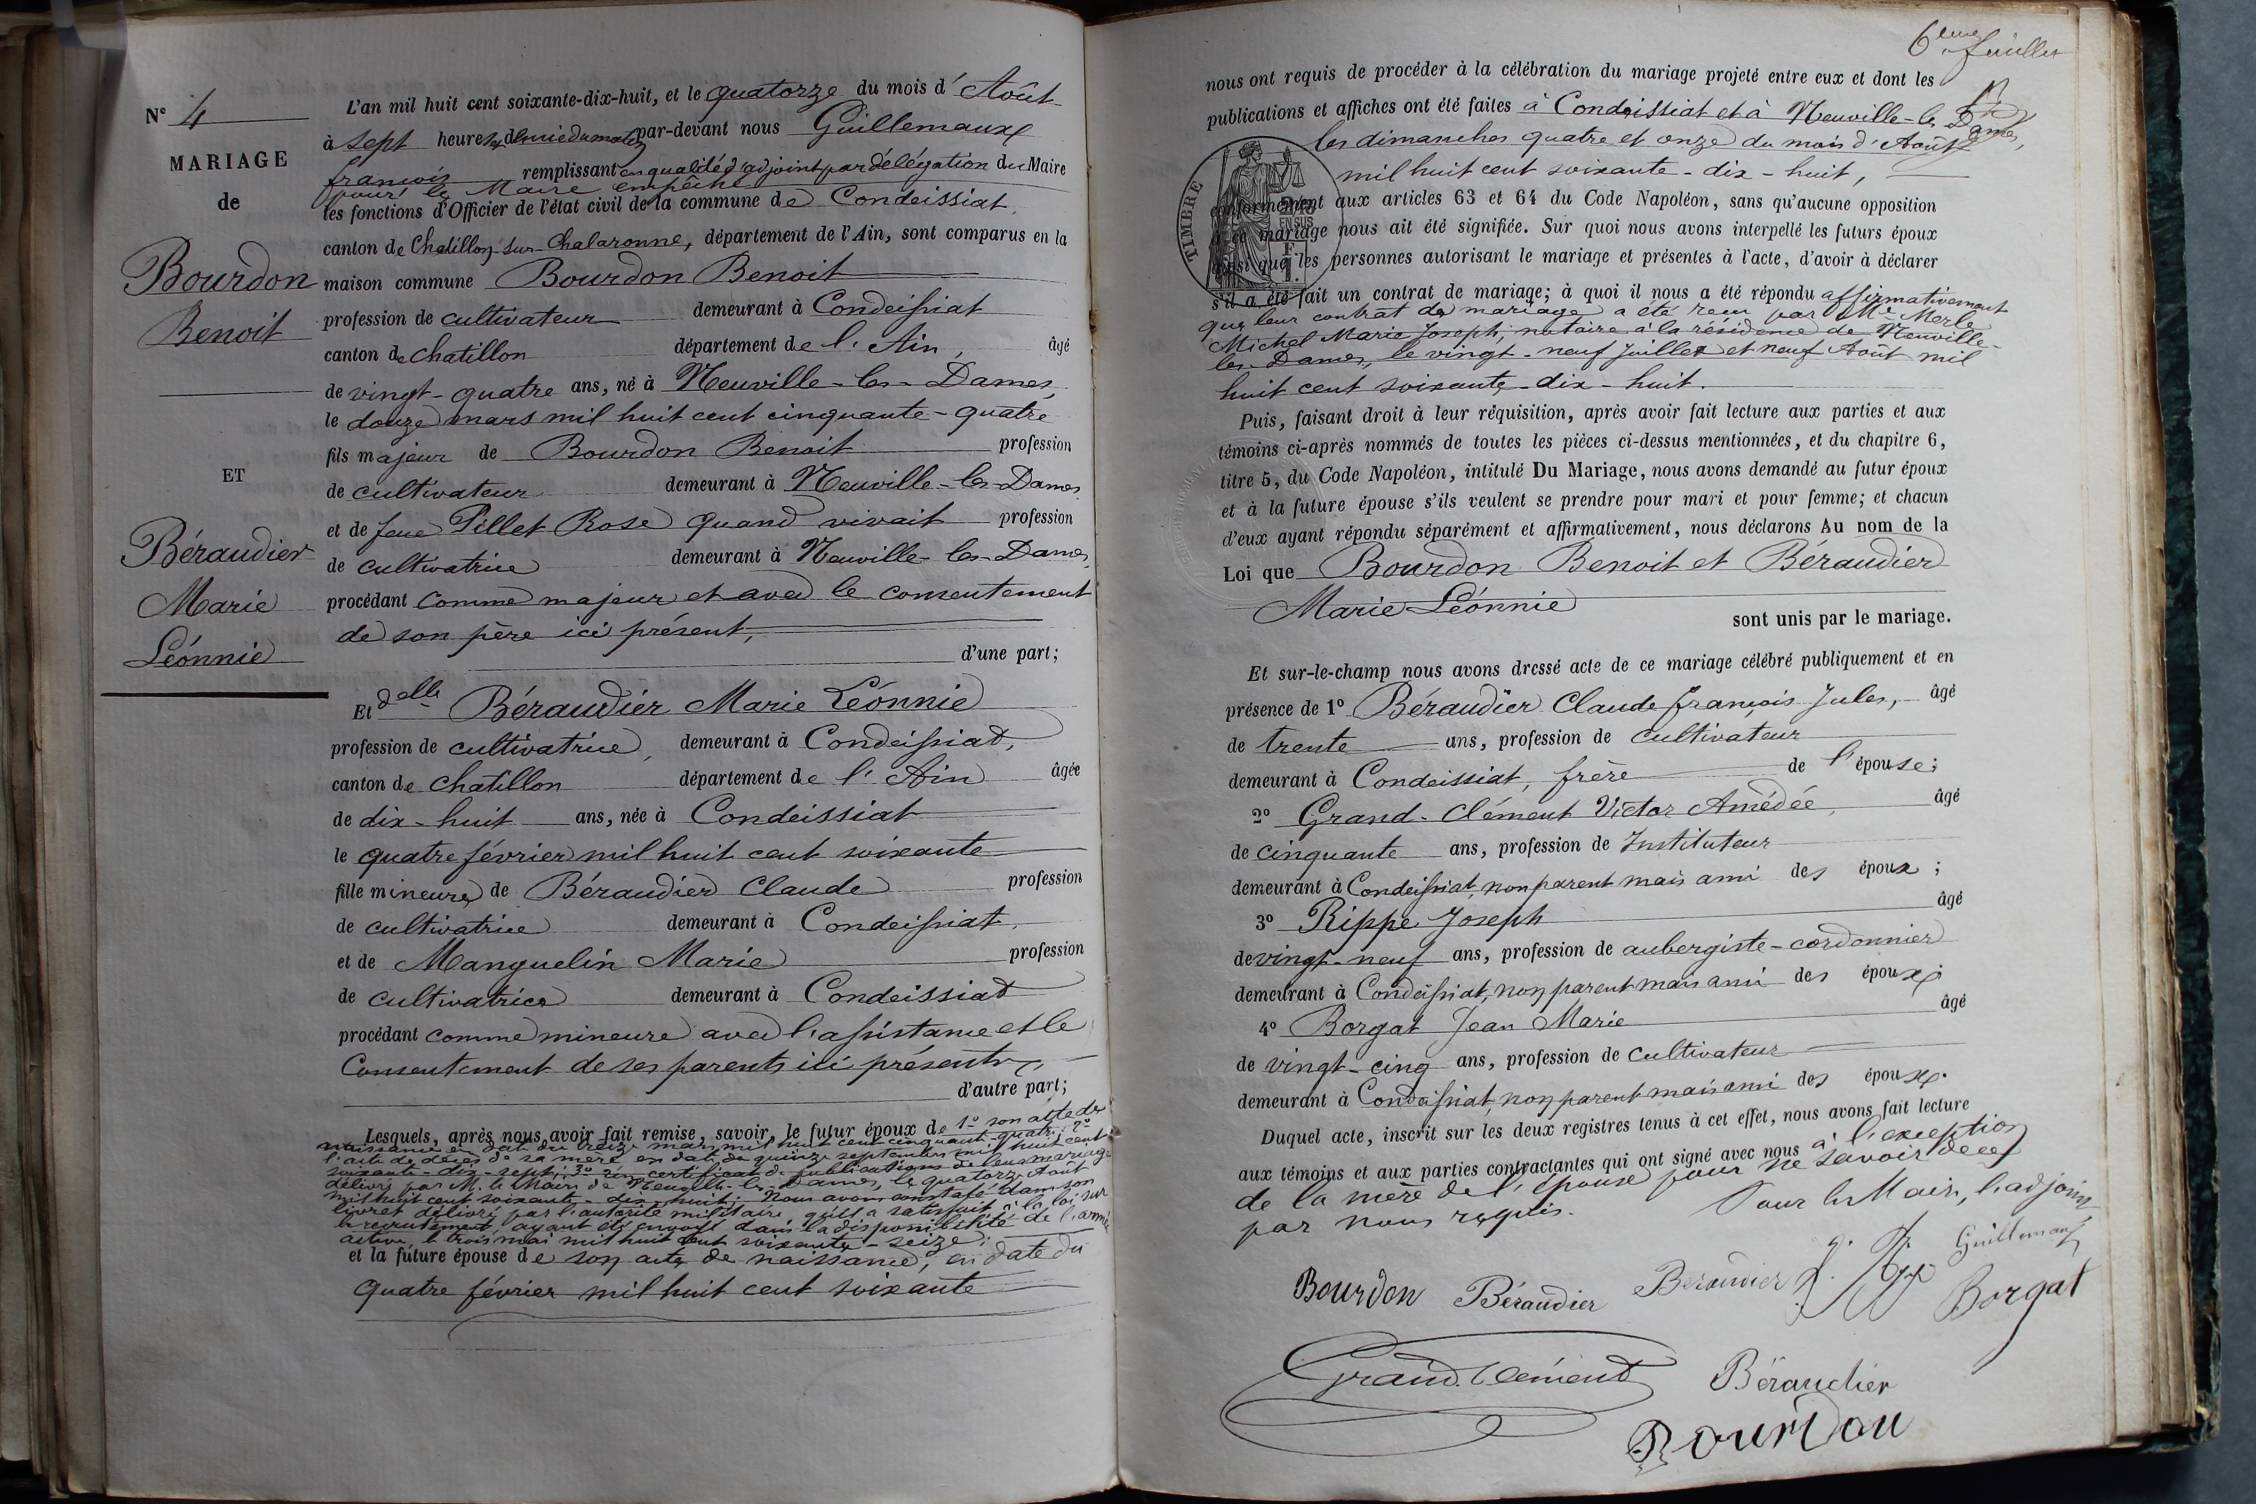 N° 4
MARIAGE
de
Bourdon
Benoit
ET
Béraudier
Marie
Léonnie
L'an mil huit cent soixante-dix-huit, et le quatorze du mois d'Août
à sept heures et demie du matin par-devant nous Guillemaux
françois remplissant en qualité d'adjoint par délégation du Maire
pour le Maire empêché
les fonctions d'Officier de l'état civil de la commune de Condeissiat,
canton de Chatillon-sur-Chalaronne, département de l'Ain, sont comparus en la
maison commune Bourdon Benoit
profession de cultivateur demeurant à Condeissiat
canton de chatillon département de l'Ain, âgé
de vingt-quatre ans, né à Neuville-les-Dames,
le douze mars mil huit cent cinquante-quatre
fils majeur de Bourdon Benoit profession
de cultivateur demeurant à Neuville-les-Dames
et de feue Pillet Rose quand vivait profession
de cultivatrice demeurant à Neuville-les-Dames,
procédant comme majeur et avec le consentement
de son père ici présent,
d'une part;
Et delle Béraudier Marie Léonnie
profession de cultivatrice, demeurant à Condeissiat,
canton de chatillon département de l'Ain âgée
de dix-huit ans, née à Condeissiat
le quatre février mil huit cent soixante
fille mineure de Béraudier Claude profession
de cultivatrice demeurant à Condeissiat,
et de Manguelin Marie profession
de cultivatrice demeurant à Condeissiat
procédant comme mineure avec l'assistance et le
Consentement de ses parents ici présents,
d'autre part;
Lesquels, après nous avoir fait remise, savoir, le futur époux de 1° son acte de
naissance en date du treize mars mil huit cent cinquante-quatre; 2°
l'acte de décès de sa mère en date du quinze septembre mil huit cent
soixante-dix-sept; 3° un certificat de publications de leur mariage
délivré par M. le Maire de Neuville-les-Dames, le quatorze Août
mil huit cent soixante-dix-huit. Nous avons constaté dans son
livret délivré par l'autorité militaire qu'il a satisfait à la loi sur
le recrutement, ayant été envoyé dans la disponibilité de l'armée
active, le trois mai mil huit cent soixante-seize;
et la future épouse de son acte de naissance, en date du
quatre février mil huit cent soixante
6eme feuillet
nous ont requis de procéder à la célébration du mariage projeté entre eux et dont les
publications et affiches ont été faites à Condeissiat et à Neuville-les-Dames,
les dimanches quatre et onze du mois d'Août
mil huit cent soixante-dix-huit,
TIMBRE
EN SUS
conformément aux articles 63 et 64 du Code Napoléon, sans qu'aucune opposition
à ce mariage nous ait été signifiée. Sur quoi nous avons interpellé les futurs époux
ainsi que les personnes autorisant le mariage et présentes à l'acte, d'avoir à déclarer
s'il a été fait un contrat de mariage; à quoi il nous a été répondu affirmativement
que leur contrat de mariage a été reçu par Me Merle
Michel Marie Joseph, notaire à la résidence de Neuville-
les-Dames, le vingt-neuf Juillet et neuf Août mil
huit cent soixante-dix-huit.
Puis, faisant droit à leur réquisition, après avoir fait lecture aux parties et aux
témoins ci-après nommés de toutes les pièces ci-dessus mentionnées, et du chapitre 6,
titre 5, du Code Napoléon, intitulé Du Mariage, nous avons demandé au futur époux
et à la future épouse s'ils veulent se prendre pour mari et pour femme; et chacun
d'eux ayant répondu séparément et affirmativement, nous déclarons Au nom de la
Loi que Bourdon Benoit et Béraudier
Marie Léonnie
sont unis par le mariage.
Et sur-le-champ nous avons drcssé acte de ce mariage célébré publiquement et en
présence de 1° Béraudier Claude françois Jules, âgé
de trente ans, profession de cultivateur
demeurant à Condeissiat, frère de l'épouse;
2° Grand-Clément Victor Amédée, âgé
de cinquante ans, profession de Instituteur
demeurant à Condeissiat, non parent mais ami des époux;
3° Rippe Joseph âgé
de vingt-neuf ans, profession de aubergiste-cordonnier
demeurant à Condeissiat, non parent mais ami des époux;
4° Borgat Jean Marie âgé
de vingt-cinq ans, profession de cultivateur
demeurant à Condeissiat, non parent mais ami des époux.
Duquel acte, inscrit sur les deux registres tenus à cet effet, nous avons fait lecture
aux témoins et aux parties contractantes qui ont signé avec nous à l'exception
de la mère de l'épouse pour ne savoir de ce
par nous requis. Pour le Maire, l'adjoint
Guillemaux
Bourdon Béraudier Beraudier Borgat
Grand-Clément Béraudier
Bourdon